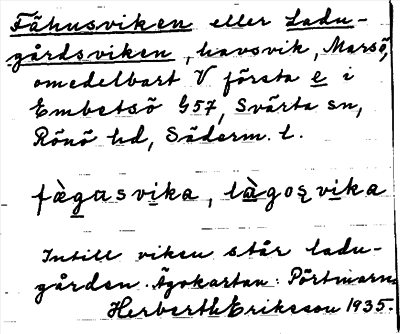 Fähusviken eller Ladu-
gårdsviken, havsvik, Marsö,
omedelbart V första e i
Embetsö G57, Svärta sn,
Rönö hd, Söderm. l.
fä̀gɑsvika, lɑ̀goʂvika
Intill viken står ladu-
gården. Ägokartan: Pörtmarn.
Herbert Eriksson 1935.